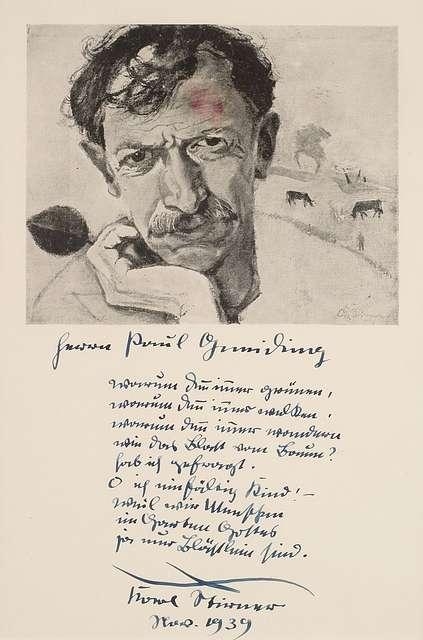 Herrn Paul
warum denn immer grünen,
warum denn immer welken.
warum denn immer wandern
wie das Blatt vom Baum?
hab ich gefragt.
O ich einfältig Kind! –
weil wir Menschen
im Garten Gottes
ja nur Blättlein sind.
Karl Stirner
Nov. 1939